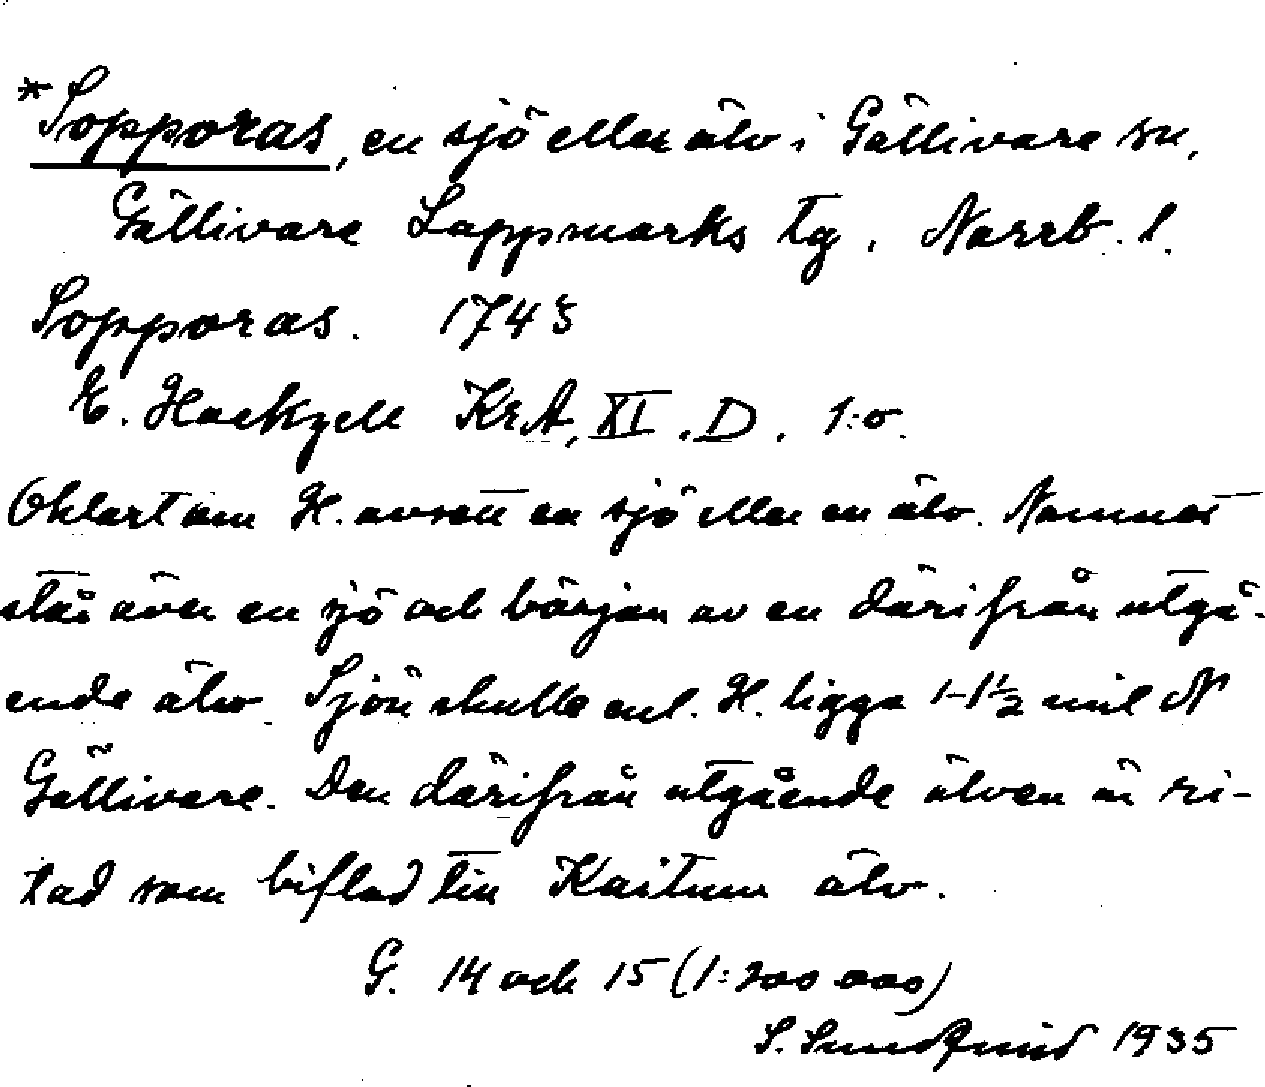 *Sopporas, en sjö eller älv i Gällivare sn,
Gällivare Lappmarks tg, Norrb. l.
Sopporas. 1743
E. Hackzell KrA, XI. D. 1:o.
Oklart om H. avsett en sjö eller en älv. Namnet
står över en sjö och början av en därifrån utgå-
ende älv. Sjön skulle enl. H. ligga 1-1½ mil N
Gällivare. Den därifrån utgående älven är ri-
tad som biflod till Kaitum älv.
G. 14 och 15 (1:200 000)
S. 1935